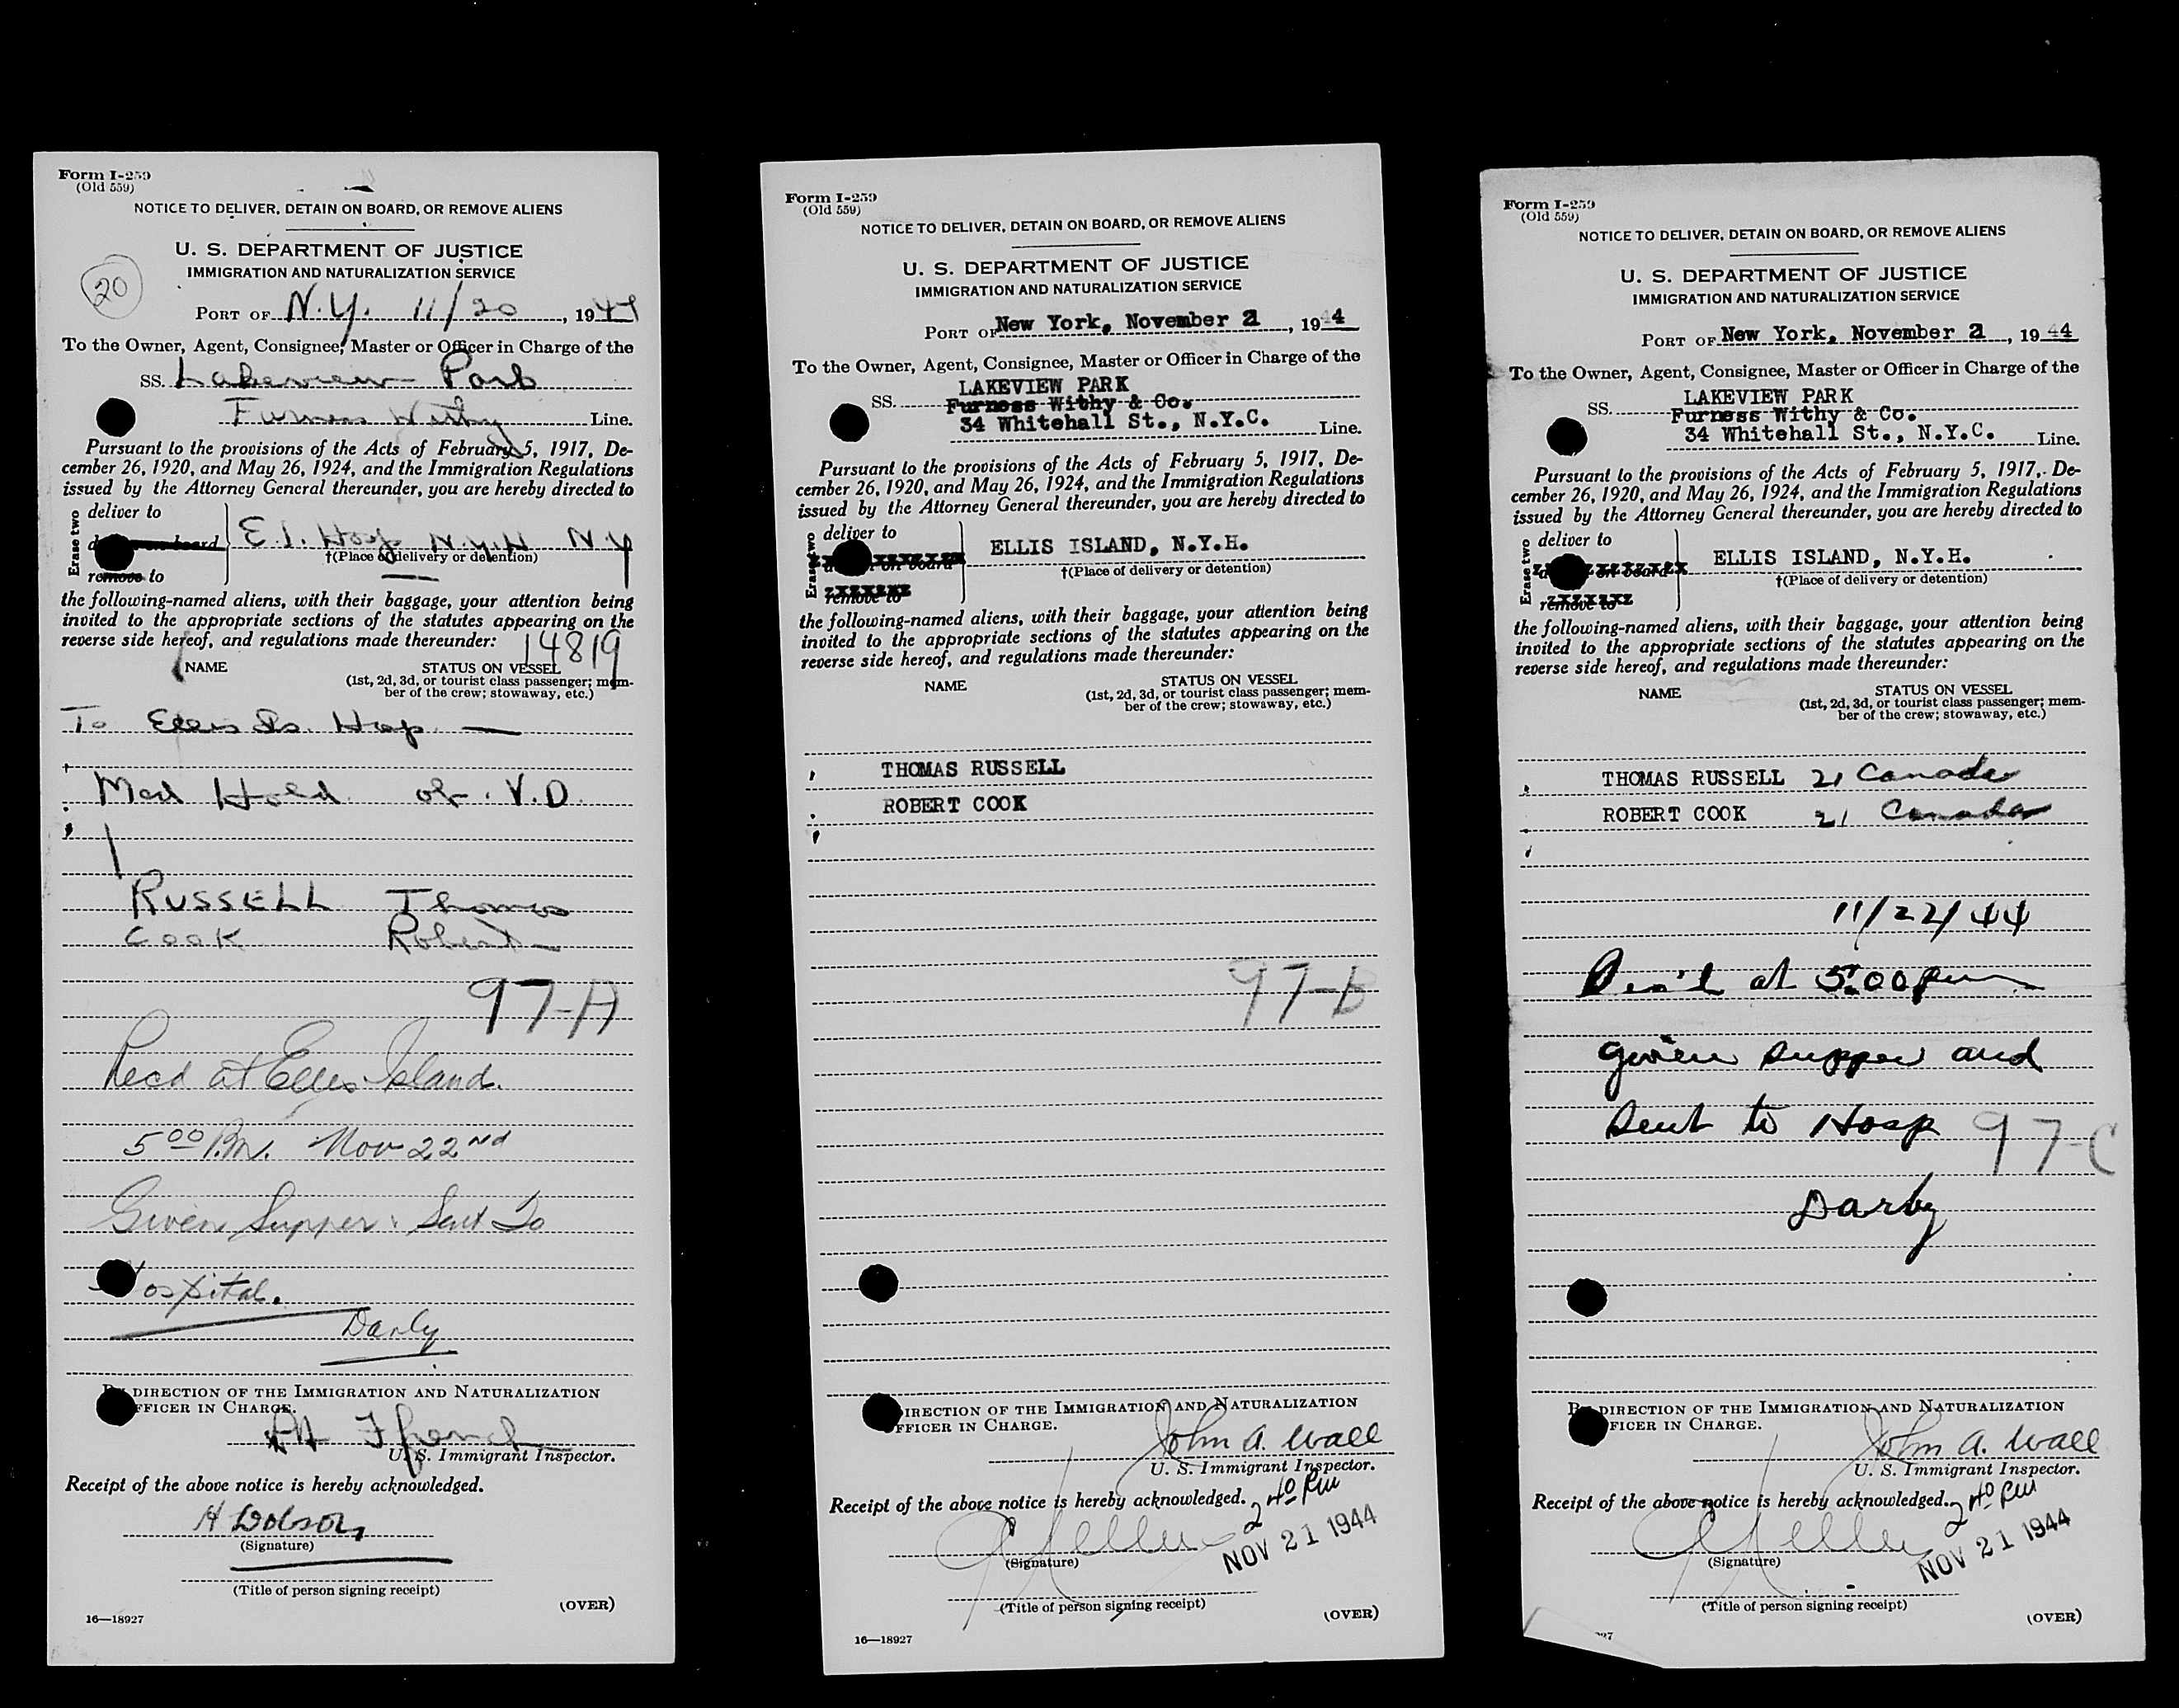 Form I-259
(Old 559)
NOTICE TO DELIVER, DETAIN ON BOARD, OR REMOVE ALIENS
U. S. DEPARTMENT OF JUSTICE
IMMIGRATION AND NATURALIZATION SERVICE
20
PORT OF N.Y. 11/20, 1944
To the Owner, Agent, Consignee, Master or Officer in Charge of the
SS. Lakeview Park
Furness Withy Line.
Pursuant to the provisions of the Acts of February 5, 1917, De-
cember 26, 1920, and May 26, 1924, and the Immigration Regulations
issued by the Attorney General thereunder, you are hereby directed to
Erase two
deliver to
on board
E.I. Hosp N.Y.H N.Y
†(Place of delivery or detention)
remove to
the following-named aliens, with their baggage, your attention being
invited to the appropriate sections of the statutes appearing on the
reverse side hereof, and regulations made thereunder:
14819
NAME STATUS ON VESSEL
(1st, 2d, 3d, or tourist class passenger; mem-
ber of the crew; stowaway, etc.)
To Ellis Is. Hosp —
Med Hold V.D.
RUSSELL Thomas
Cook Robert
97-A
Recd at Ellis Island.
5⁰⁰ P.M. Nov 22nd
Given Supper & Sent To
Hospital.
Darby
BY DIRECTION OF THE IMMIGRATION AND NATURALIZATION
OFFICER IN CHARGE.
U. S. Immigrant Inspector.
Receipt of the above notice is hereby acknowledged.
H Dobson
(Signature)
(Title of person signing receipt)
(OVER)
16—18927
Form I-259
(Old 559)
NOTICE TO DELIVER, DETAIN ON BOARD, OR REMOVE ALIENS
U. S. DEPARTMENT OF JUSTICE
IMMIGRATION AND NATURALIZATION SERVICE
PORT OF New York, November 2, 1944
To the Owner, Agent, Consignee, Master or Officer in Charge of the
LAKEVIEW PARK
SS. Furness Withy & Co.
34 Whitehall St., N.Y.C. Line.
Pursuant to the provisions of the Acts of February 5, 1917, De-
cember 26, 1920, and May 26, 1924, and the Immigration Regulations
issued by the Attorney General thereunder, you are hereby directed to
Erase two
deliver to
on board
ELLIS ISLAND, N.Y.H.
†(Place of delivery or detention)
remove to
the following-named aliens, with their baggage, your attention being
invited to the appropriate sections of the statutes appearing on the
reverse side hereof, and regulations made thereunder:
NAME STATUS ON VESSEL
(1st, 2d, 3d, or tourist class passenger; mem-
ber of the crew; stowaway, etc.)
THOMAS RUSSELL
ROBERT COOK
97-B
DIRECTION OF THE IMMIGRATION AND NATURALIZATION
OFFICER IN CHARGE.
John A. Wall
U. S. Immigrant Inspector.
Receipt of the above notice is hereby acknowledged. 2 40 PM
(Signature)
NOV 21 1944
(Title of person signing receipt)
(OVER)
16—18927
Form I-259
(Old 559)
NOTICE TO DELIVER, DETAIN ON BOARD, OR REMOVE ALIENS
U. S. DEPARTMENT OF JUSTICE
IMMIGRATION AND NATURALIZATION SERVICE
PORT OF New York, November 2, 1944
To the Owner, Agent, Consignee, Master or Officer in Charge of the
LAKEVIEW PARK
SS. Furness Withy & Co.
34 Whitehall St., N.Y.C. Line.
Pursuant to the provisions of the Acts of February 5, 1917, De-
cember 26, 1920, and May 26, 1924, and the Immigration Regulations
issued by the Attorney General thereunder, you are hereby directed to
Erase two
deliver to
on board
ELLIS ISLAND, N.Y.H.
†(Place of delivery or detention)
remove to
the following-named aliens, with their baggage, your attention being
invited to the appropriate sections of the statutes appearing on the
reverse side hereof, and regulations made thereunder:
NAME STATUS ON VESSEL
(1st, 2d, 3d, or tourist class passenger; mem-
ber of the crew; stowaway, etc.)
THOMAS RUSSELL 21 Canada
ROBERT COOK 21 Canada
11/22/44
at 5:00 pm
given supper and
sent to Hosp
97-C
Darby
BY DIRECTION OF THE IMMIGRATION AND NATURALIZATION
OFFICER IN CHARGE.
John A. Wall
U. S. Immigrant Inspector.
Receipt of the above notice is hereby acknowledged. 2 40 PM
(Signature)
NOV 21 1944
(Title of person signing receipt)
(OVER)